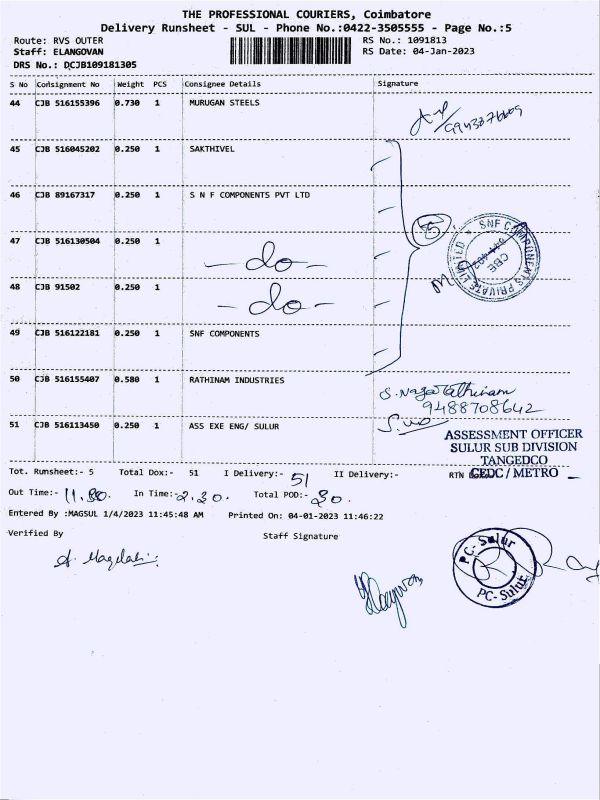 THE PROFESSIONAL COURIERS, Coimbatore
Delivery Runsheet - SUL - Phone No.:0422-3505555 - Page No.:5
Route: RVS OUTER
RS No.: 1091813
Staff: ELANGOVAN
RS Date: 04-Jan-2023
DRS No.: DCJB109181305
S No Consignment No Weight PCS Consignee Details Signature
44 CJB 516155396 0.730 1 MURUGAN STEELS
45 CJB 516045202 0.250 1 SAKTHIVEL
46 CJB 89167317 0.250 1 S N F COMPONENTS PVT LTD
5
SNF COMPONENTS PRIVATE LIMITED
CBE
47 CJB 516130504 0.250 1 -do-
48 CJB 91502 0.250 1 -do-
49 CJB 516122181 0.250 1 SNF COMPONENTS
50 CJB 516155407 0.580 1 RATHINAM INDUSTRIES
9488708642
51 CJB 516113450 0.250 1 ASS EXE ENG/ SULUR
ASSESSMENT OFFICER
SULUR SUB DIVISION
TANGEDCO
CEDC / METRO
Tot. Runsheet:- 5 Total Dox:- 51 I Delivery:- 51 II Delivery:- RTN
Out Time:- 11.30. In Time:- 2.30. Total POD:- 30.
Entered By :MAGSUL 1/4/2023 11:45:48 AM Printed On: 04-01-2023 11:46:22
Verified By Staff Signature
PC-Sulur
PC-Sulur